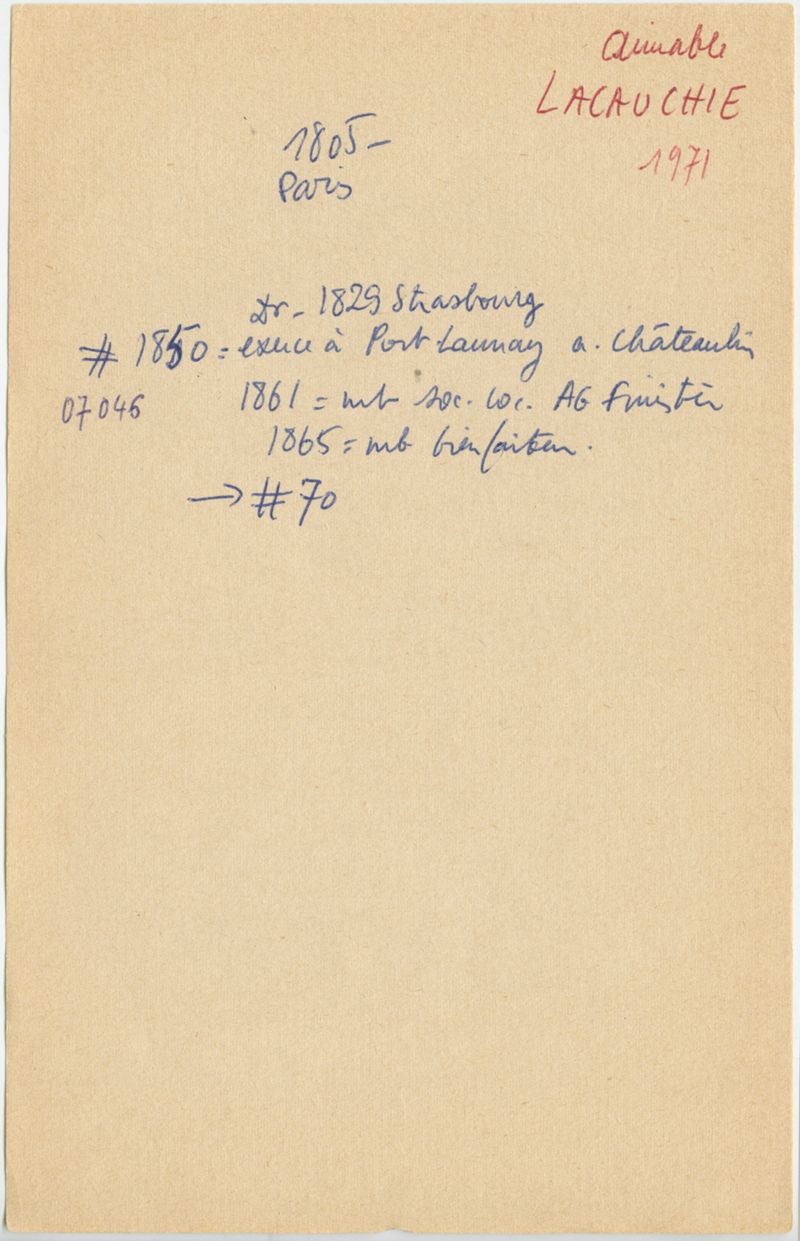 Aimable
LACAUCHIE
1971
1805-
Paris
Dr - 1829 Strasbourg
# 1850 = exerce à Port Launay a. Châteaulin
07046
1861 = mb soc. loc. AG Finistère
1865 = mb bienfaiteur.
→ # 70